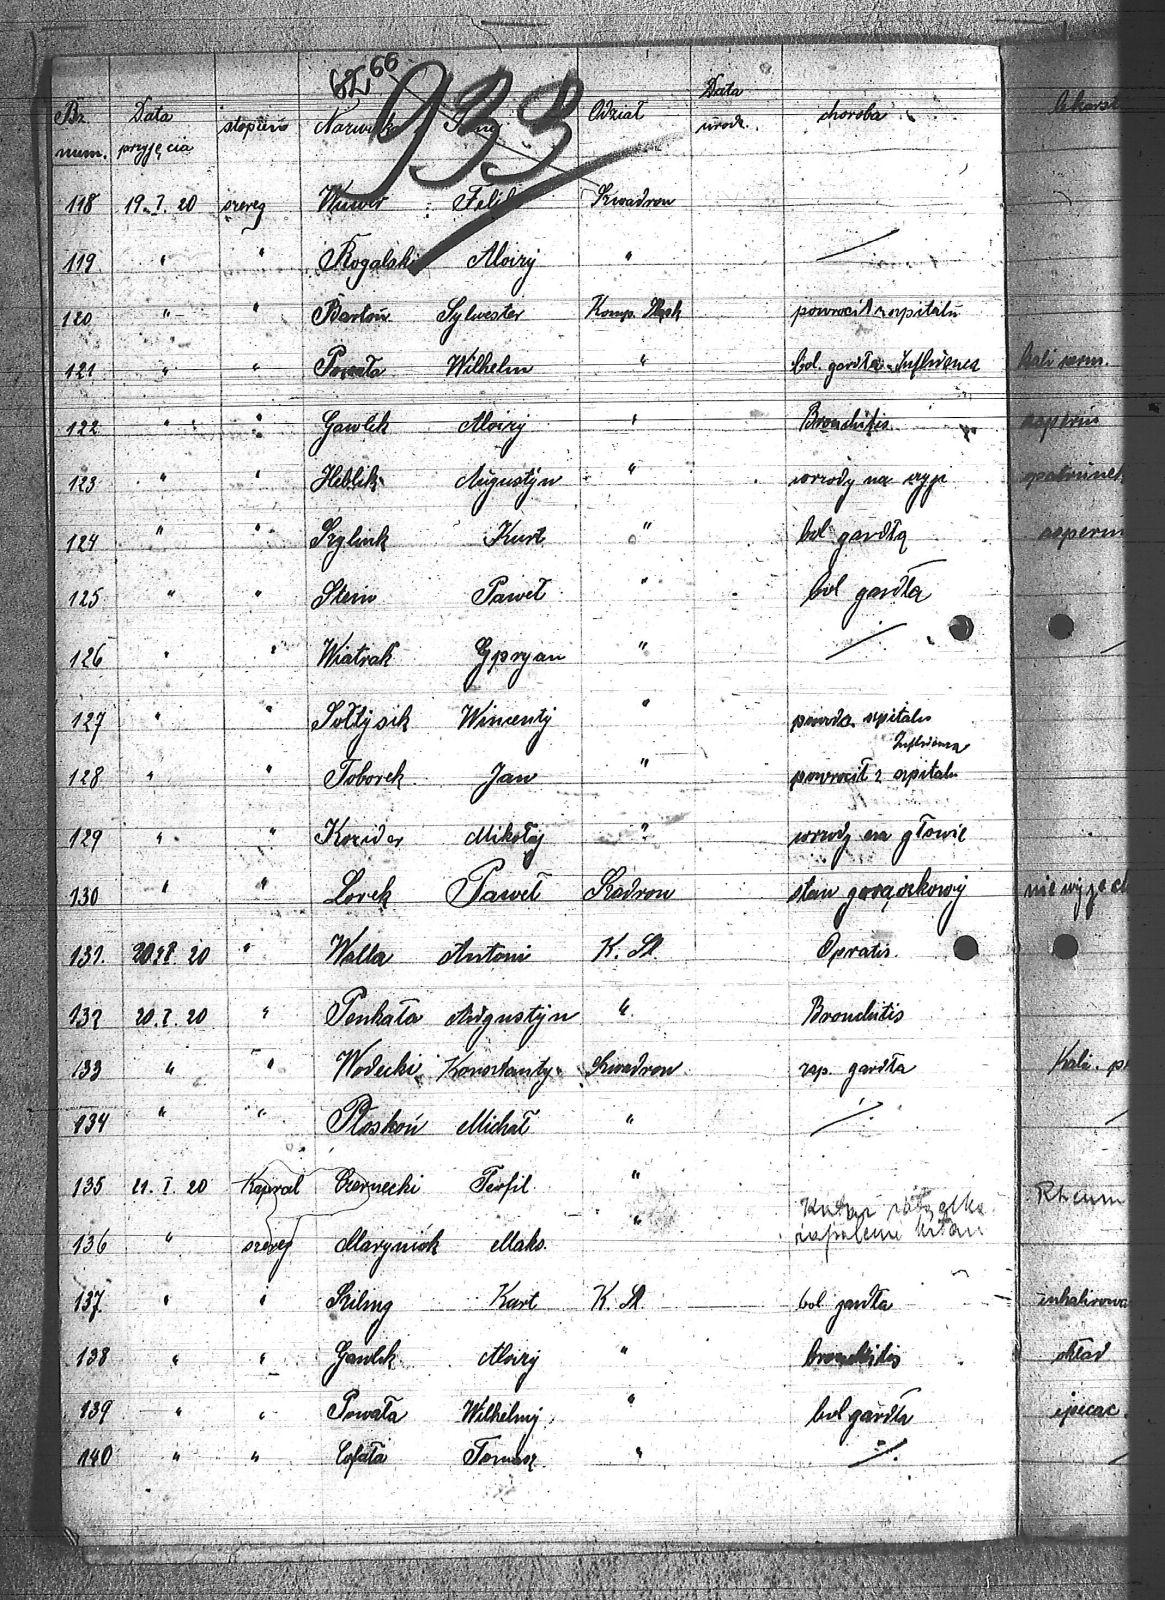 66
933
Bż. num. Data przyjęcia stopień Nazwisko Imię Odział Data urodz. choroba lekarst
118 19.I.20 szereg Wuwer Feli Szwadron
119 " " Rogalski Alojzy "
120 " " Bartoń Sylwester Komp. Szk powrócił z szpitalu
121 " " Powała Wilhelm " bol. gardła Influenca kali
122 " " Gawlik Alojzy " Bronchitis asperin
123 " " Heblik Augustyn " wrzody na szyji opatrunek
124 " " Szylink Kurt " bol gardła asperin
125 " " Stein Paweł " bol gardła
126 " " Wiatrak Cypryan "
127 " " Sołtysik Wincenty " szpitalu
Influenca
128 " " Toborek Jan " powrócił z szpitalu
129 " " Kozider Mikołaj " wrzody na głowie
130 " " Lorek Paweł Szadron stan gorączkowy
131. 20 20 " Walla Antoni K. St Opratis.
132 20.I.20 " Penkała Augustyn " Bronchitis
133 " " Wodecki Konstanty Szwadron zap. gardła Kali.
134 " " Płoskoń Michał "
135 21.I.20 Kapral Czernecki Teofil " Rheum
136 " szereg Maryniok Maks. " zapalenie
137 " " Sziling Kurt K. St. bol gardła inhalirowa
138 " " Gawlik Alojzy " bronchitis okład
139 " " Powała Wilhelmy " bol gardła ipicac.
140 " " Tomasz "